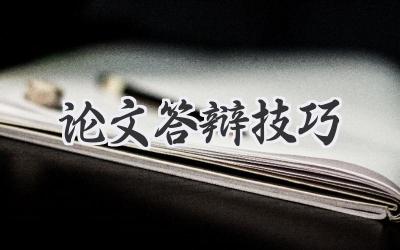 论文答辩技巧